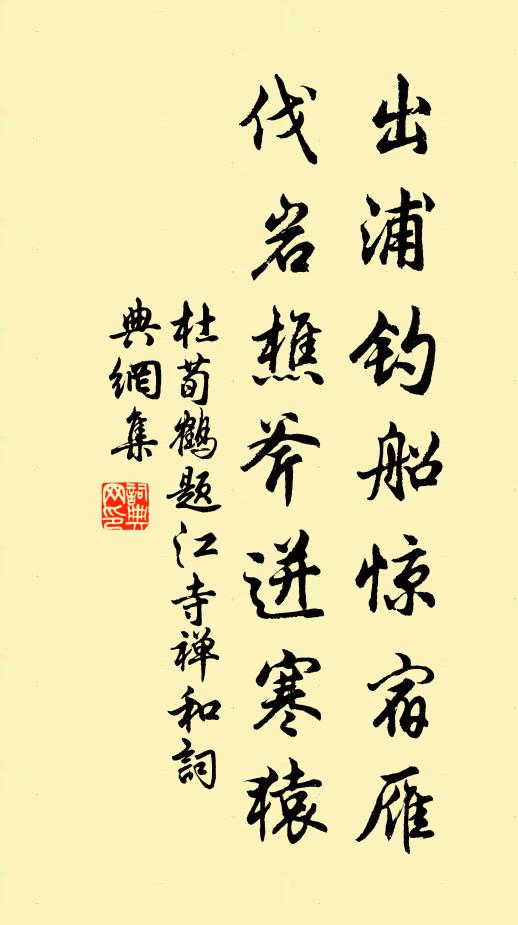 出浦钓船惊宿雁
伐岩樵斧迸寒猿
杜荀鹤题江寺禅和詞
典網集
詞典
网印